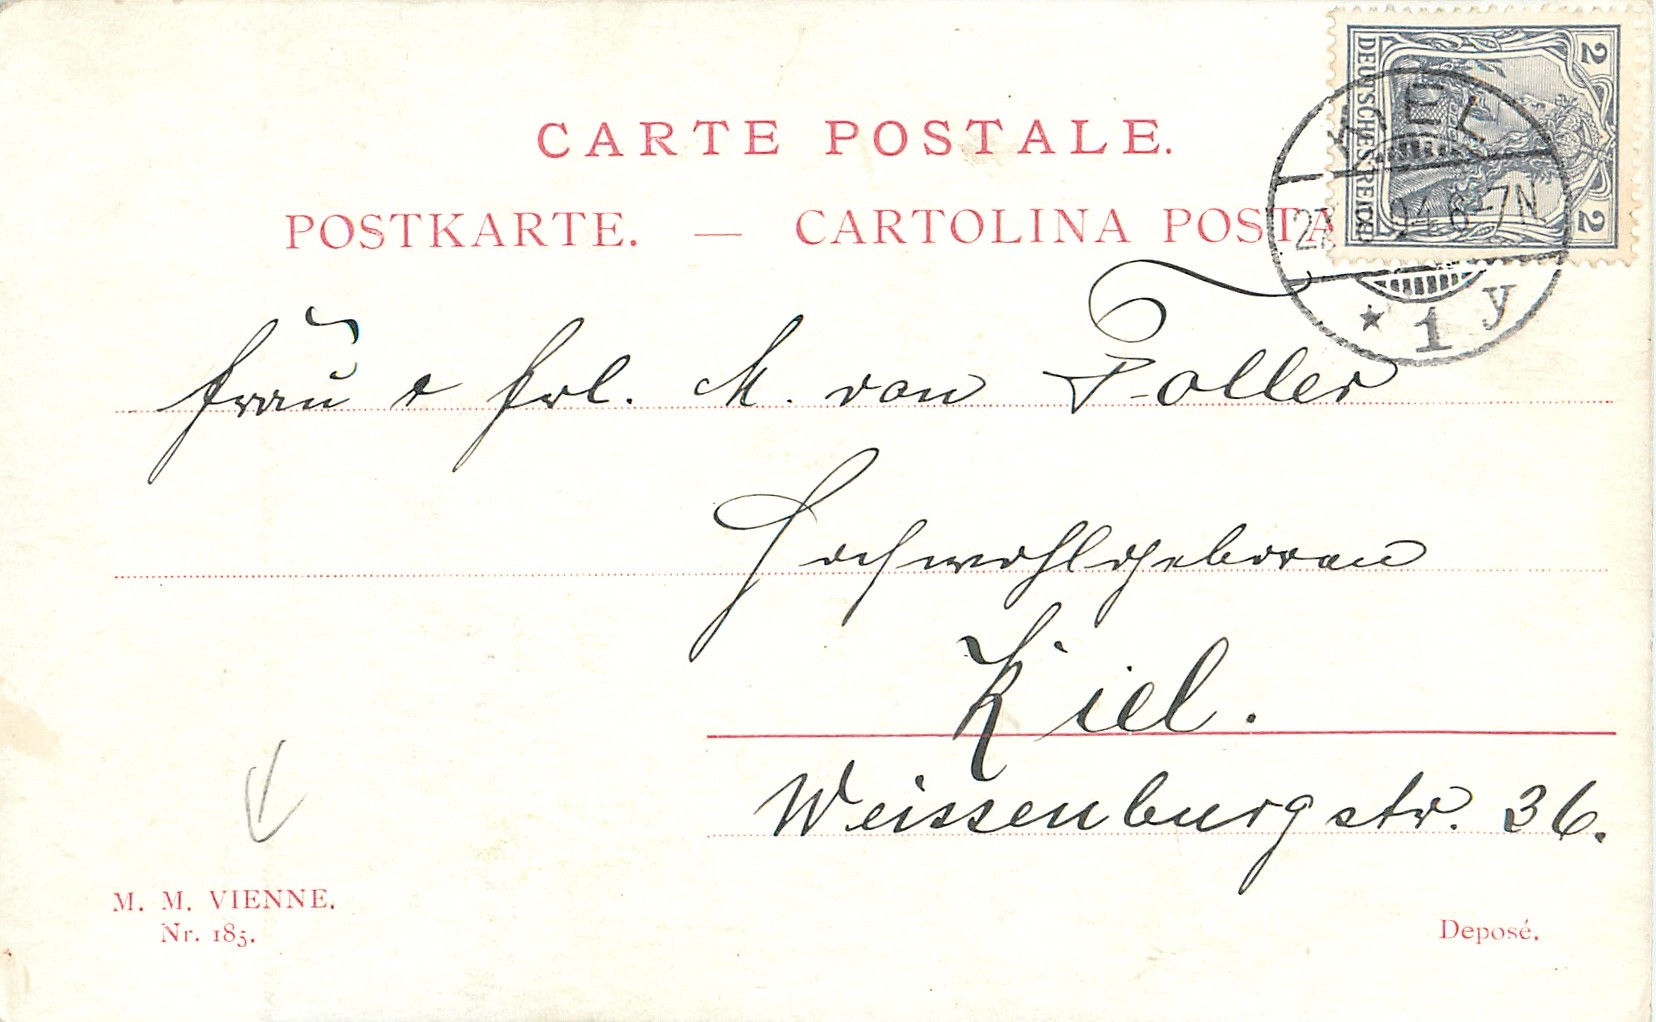 CARTE POSTALE.
POSTKARTE. — CARTOLINA POSTA
DEUTSCHES REICH
2 2
KIEL
6-7N
* 1 y
Frau & Frl. M. von Foller
Hochwohlgeboren
Kiel.
Weissenburgstr. 36.
M. M. VIENNE.
Nr. 185.
Deposé.